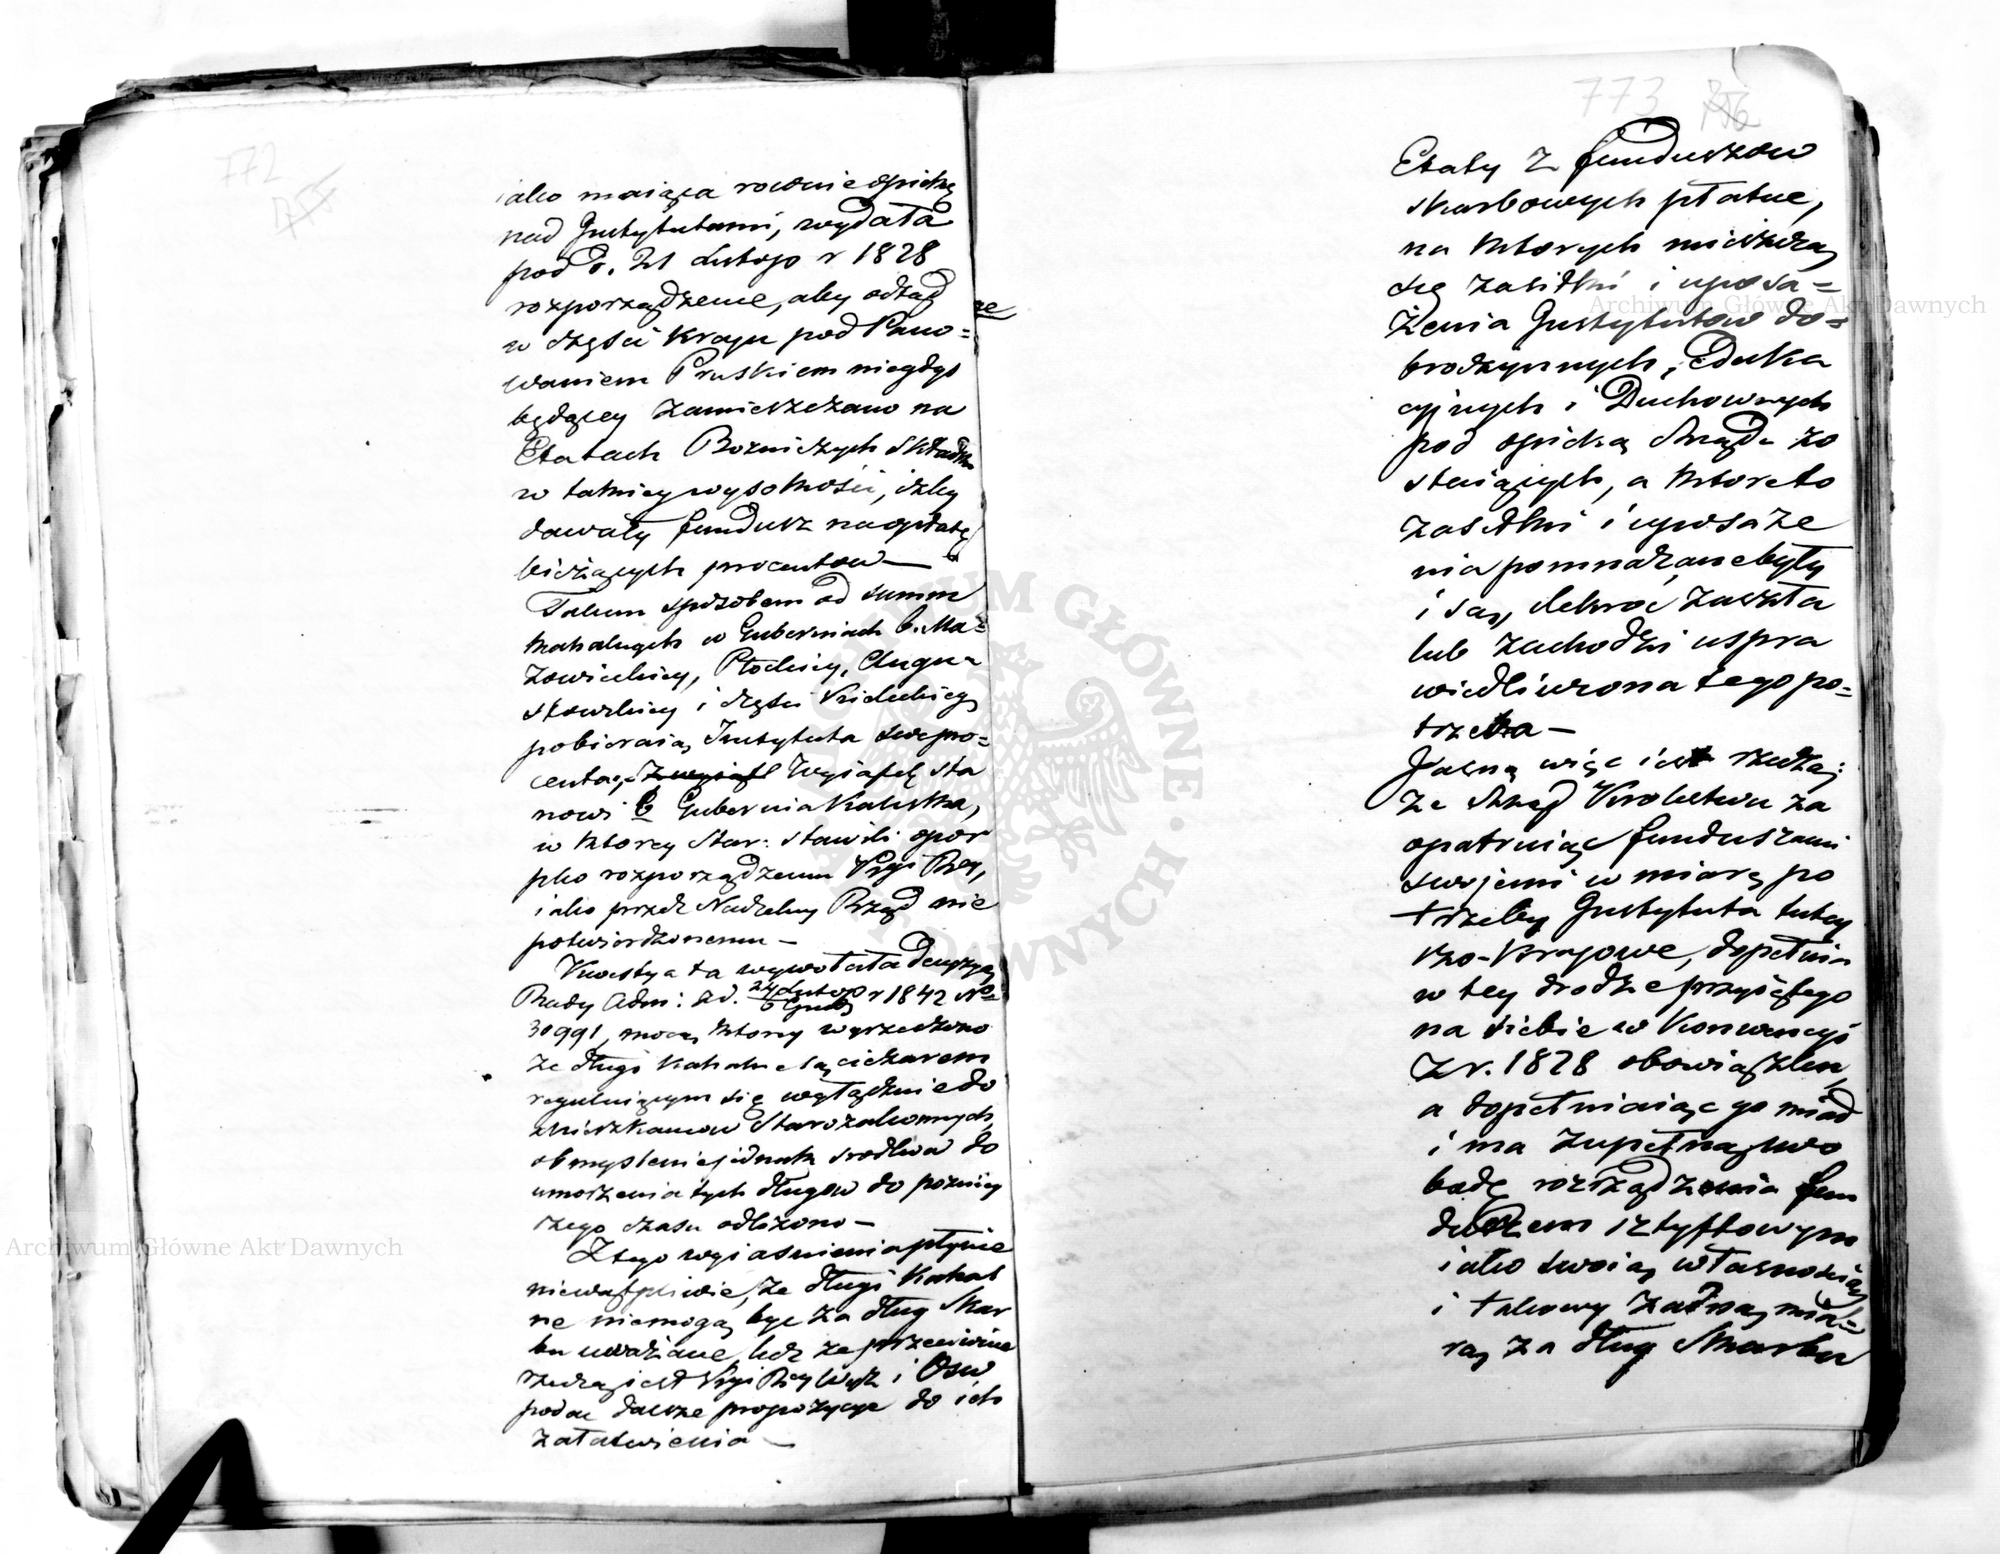 772
iako maiąca rownie opiekę
nad Instytutami, wydała
pod d. 21 Lutego r 1828
rozporządzenie, aby odtąd
w części kraju pod Pano=
waniem Pruskiem niegdyś
będącey zamieszczano na
Etatach Bożniczych składki
w takiey wysokości, iżby
dawały fundusz na opłatę
bieżących procentow —
Takim sposobem od summ
kahalnych w Guberniach b. Ma=
zowieckiey, Płockiey, Augu=
stowskiey i części Kieleckiey
pobieraią Instytuta swe pro=
centa, z wyiąt Wyiątek sta
nowi b Gubernia Kaliska,
w ktorey Star: stawili opor
pko rozporządzeniu Kgi Rzą,
iako przez Nadzelny Rząd nie
potwierdzonemu —
Kwestya ta wywołała decyzyą
Rady Adm: z d. 24 Lutego r 1842 No
30991, mocą ktorey wyrzeczono
że długi kahalne są ciężarem
reguluiącym się wyłącznie do
mieszkancow Starozakonnych,
obmyslenie jednak srodkow do
umorzenia tych długow do pozniey
szego czasu odłożono —
Z tego wyiasnienia płynie
niewątpliwie, że długi kahal
ne niemogą byc za dług Skar
bu uważane, lecz że przeciwnie
rzeczą iest Kgi Rzą Wyzn i Osw
podac dalsze propozycye do ich
załatwienia —
773
Etaty z funduszow
skarbowych płatne,
na ktorych mieszczą
się zasiłki i uposa=
żenia Instytutow do=
broczynnych, Eduka
cyjnych i Duchownych
pod opieką Rządu zo
staiących, a ktoreto
zasiłki i uposaże
nia pomnażane były
i są, ilekroć zaszła
lub zachodzi uspra
wiedliwiona tego po=
trzeba —
Jasną więc iest rzeczą:
że Rząd Krolestwa za
opatruiąc funduszami
swojemi w miarę po
trzeby Instytuta tutey
szo-krajowe, dopełnia
w tey drodze przyiętego
na siebie w Konwencyi
z r. 1828 obowiązku,
a dopełniaiąc go miał
i ma zupełną swo
bodę rozrządzenia fun
duszem sztyftowym
iako swoią własnością
i takowy żadną mia=
rą za dług Skarbu
Archiwum Główne Akt Dawnych
Archiwum Główne Akt Dawnych